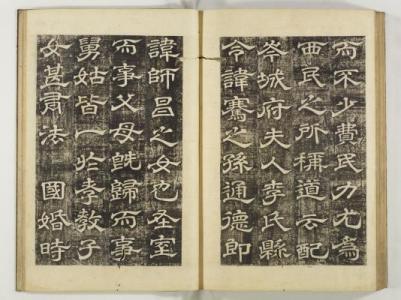 而不少費民力尤為
西民之所稱道云配
岑城府夫人李氏縣
令諱騫之孫通德郎
諱師昌之女也在室
而事父母旣歸而事
舅姑皆一於孝敎子
女甚肅法 國婚時